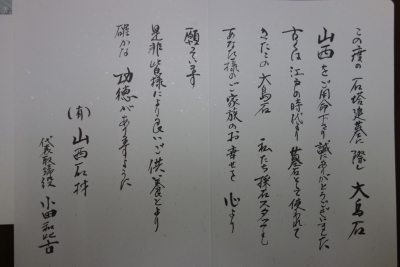 この度の石塔建墓に際し 大島石
山西をご用命下さり誠に有難うございました
古くは江戸の時代より 墓石として使われて
きたこの大島石 私たち採石スタッフも
あなた様のご家族のお幸せを 心より
願っています
是非皆様により良いご供養とより
確かな 功徳がありますように
(有) 山西石材
代表取締役 小田和比古